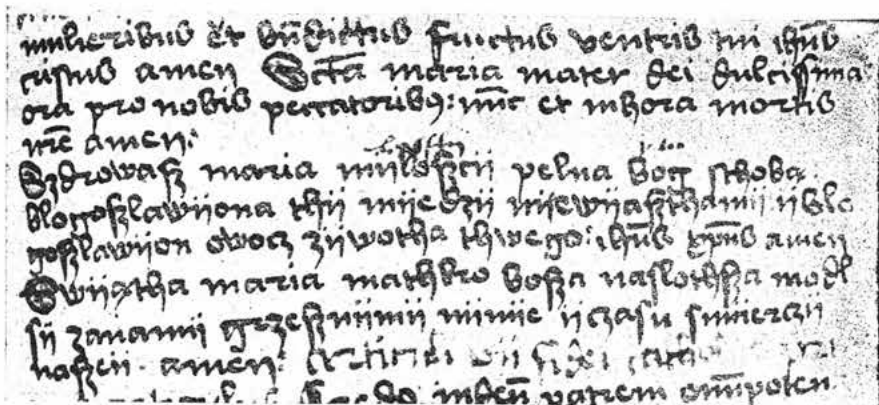 mulieribus et bn̄dictus fructus ventris tui ihūs
cristus amen Sctā maria mater dei dulcissima
ora pro nobis peccatoribꝰ: nūc et in hora mortis
nr̄e amen:
Szdrowasz maria miiloszcii pelna bog sthoba
blogoszlawiiona thii miiedzii niiewiiasthamii ii blo
goszlawiion owocz ziiwotha thwego: ihūs xp̄us amen
Swiiatha maria mathko bosza naslothsza modl
sii zanamii grzeszniimii miniie ii czasu smierczii
naszeii amen: Articuli fidei
in deū patrem om̄ipoten